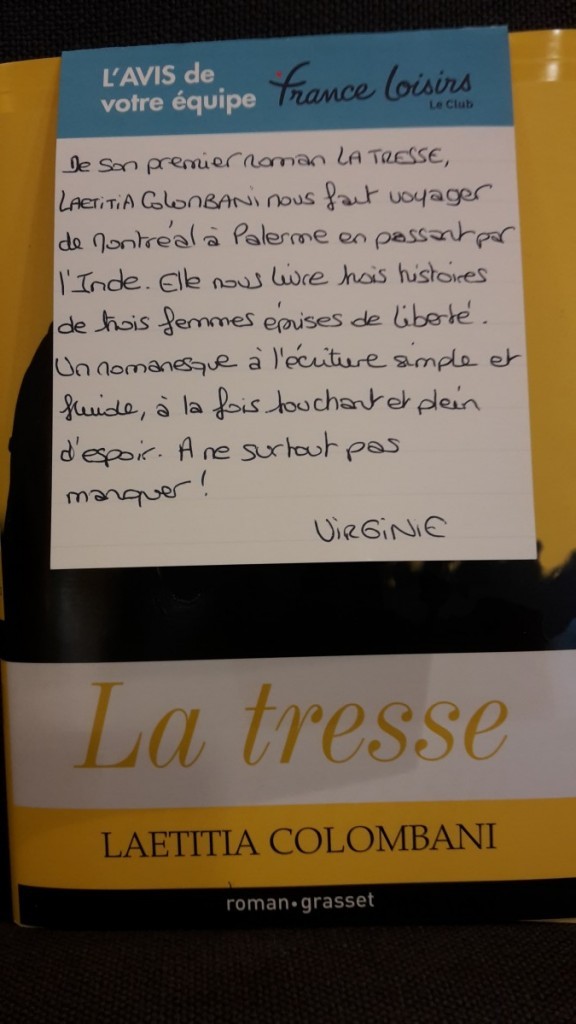 L'AVIS de
votre équipe
France Loisirs
Le Club
De son premier roman LA TRESSE,
LAETITIA COLONBANI nous fait voyager
de Montréal à Palerme en passant par
l'Inde. Elle nous livre trois histoires
de trois femmes éprises de liberté.
Un romanesque à l'écriture simple et
fluide, à la fois touchant et plein
d'espoir. A ne surtout pas
manquer !
VIRGINIE
La tresse
LAETITIA COLOMBANI
roman•grasset